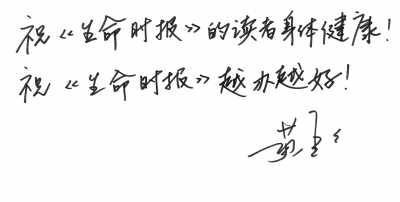 祝《生命时报》的读者身体健康！
祝《生命时报》越办越好！